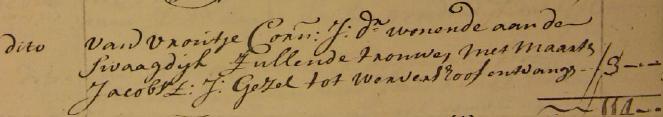 dito van d vrontje Corn: J: dr wonende aan de
Swaagdijk Zullende trouwe, met Maarte
Jacobsz: J: Gezel tot Wervershoof ontvangs -- / 3 - - -